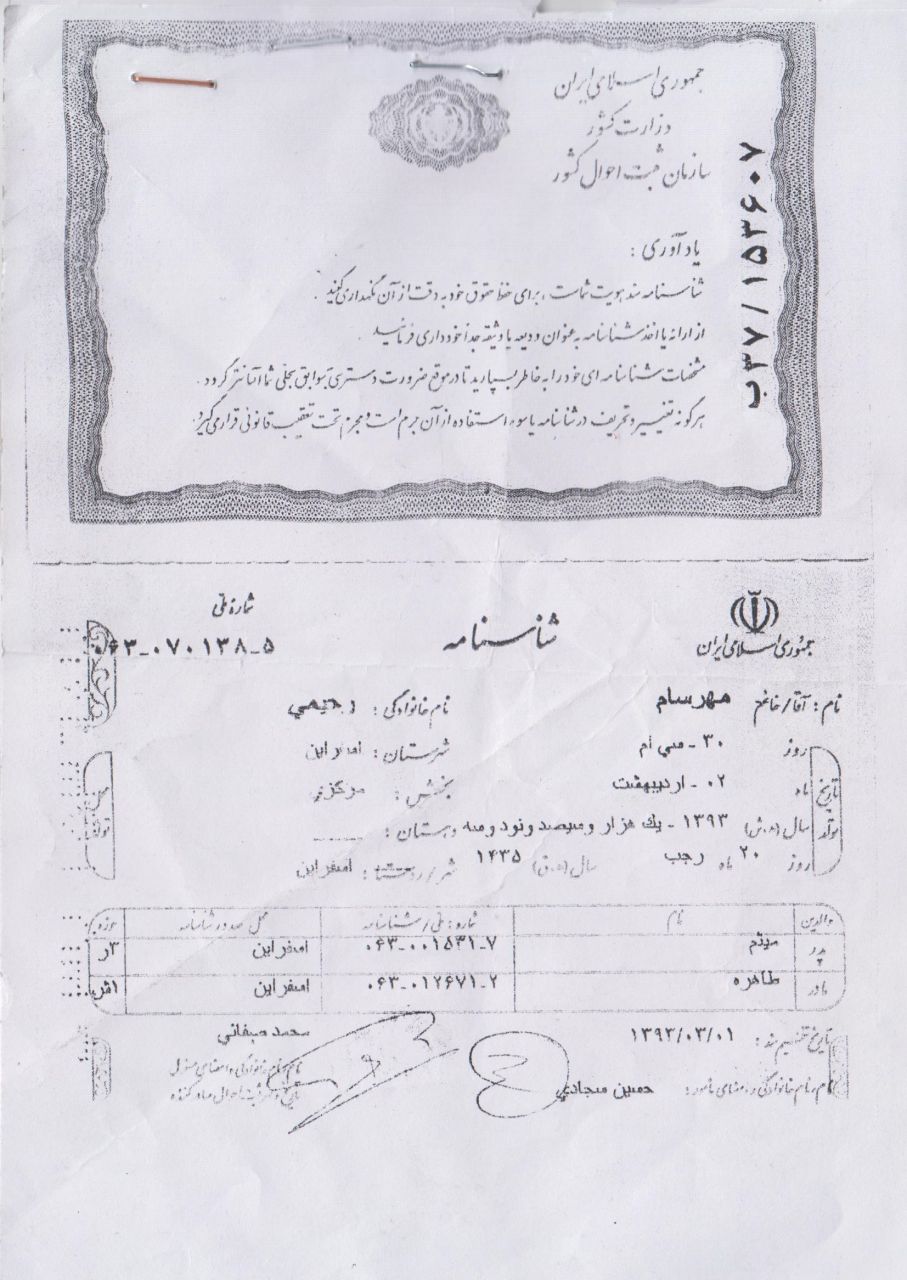 جمهوری اسلامی ایران
وزارت کشور
سازمان ثبت احوال کشور
ب۳۷/۱۵۳۶۰۷
یادآوری :
شناسنامه سند هویت شماست ، برای حفظ حقوق خود به دقت از آن نگهداری کنید .
از ارائه یا اخذ شناسنامه به عنوان ودیعه یا وثیقه جداً خودداری فرمائید .
مشخصات شناسنامه ای خود را به خاطر بسپارید تا در موقع ضرورت دسترسی به سوابق سجلی شما آسانتر گردد .
هرگونه تغییر و تحریف در شناسنامه یا سوء استفاده از آن جرم است و مجرم تحت تعقیب قانونی قرار می گیرد .
جمهوری اسلامی ایران
شناسنامه
شماره ملی
۰۶۳-۰۷۰۱۳۸-۵
نام : آقا/خانم مهرسام نام خانوادگی : رحیمي
تاریخ تولد
روز ۳۰ - سي ام شهرستان : اسفراین
ماه ۰۲ - اردیبهشت بخش : مرکزي
سال (ه.ش) ۱۳۹۳ - یك هزار و سیصد و نود و سه دهستان :
روز ۲۰ ماه رجب سال (ه.ق) ۱۴۳۵ شهر/روستا : اسفراین
محل تولد
والدین نام شماره : ملی / شناسنامه محل صدور شناسنامه حوزه
پدر میثم ۰۶۳-۰۰۱۵۳۱-۷ اسفراین ۳ر
مادر طاهره ۰۶۳-۰۱۲۶۷۱-۲ اسفراین
تاریخ تنظیم سند : ۱۳۹۳/۰۳/۰۱
محمد صفائي
نام و نام خانوادگی و امضای مأمور : حسین سجادي
نام و نام خانوادگی و امضای مسئول